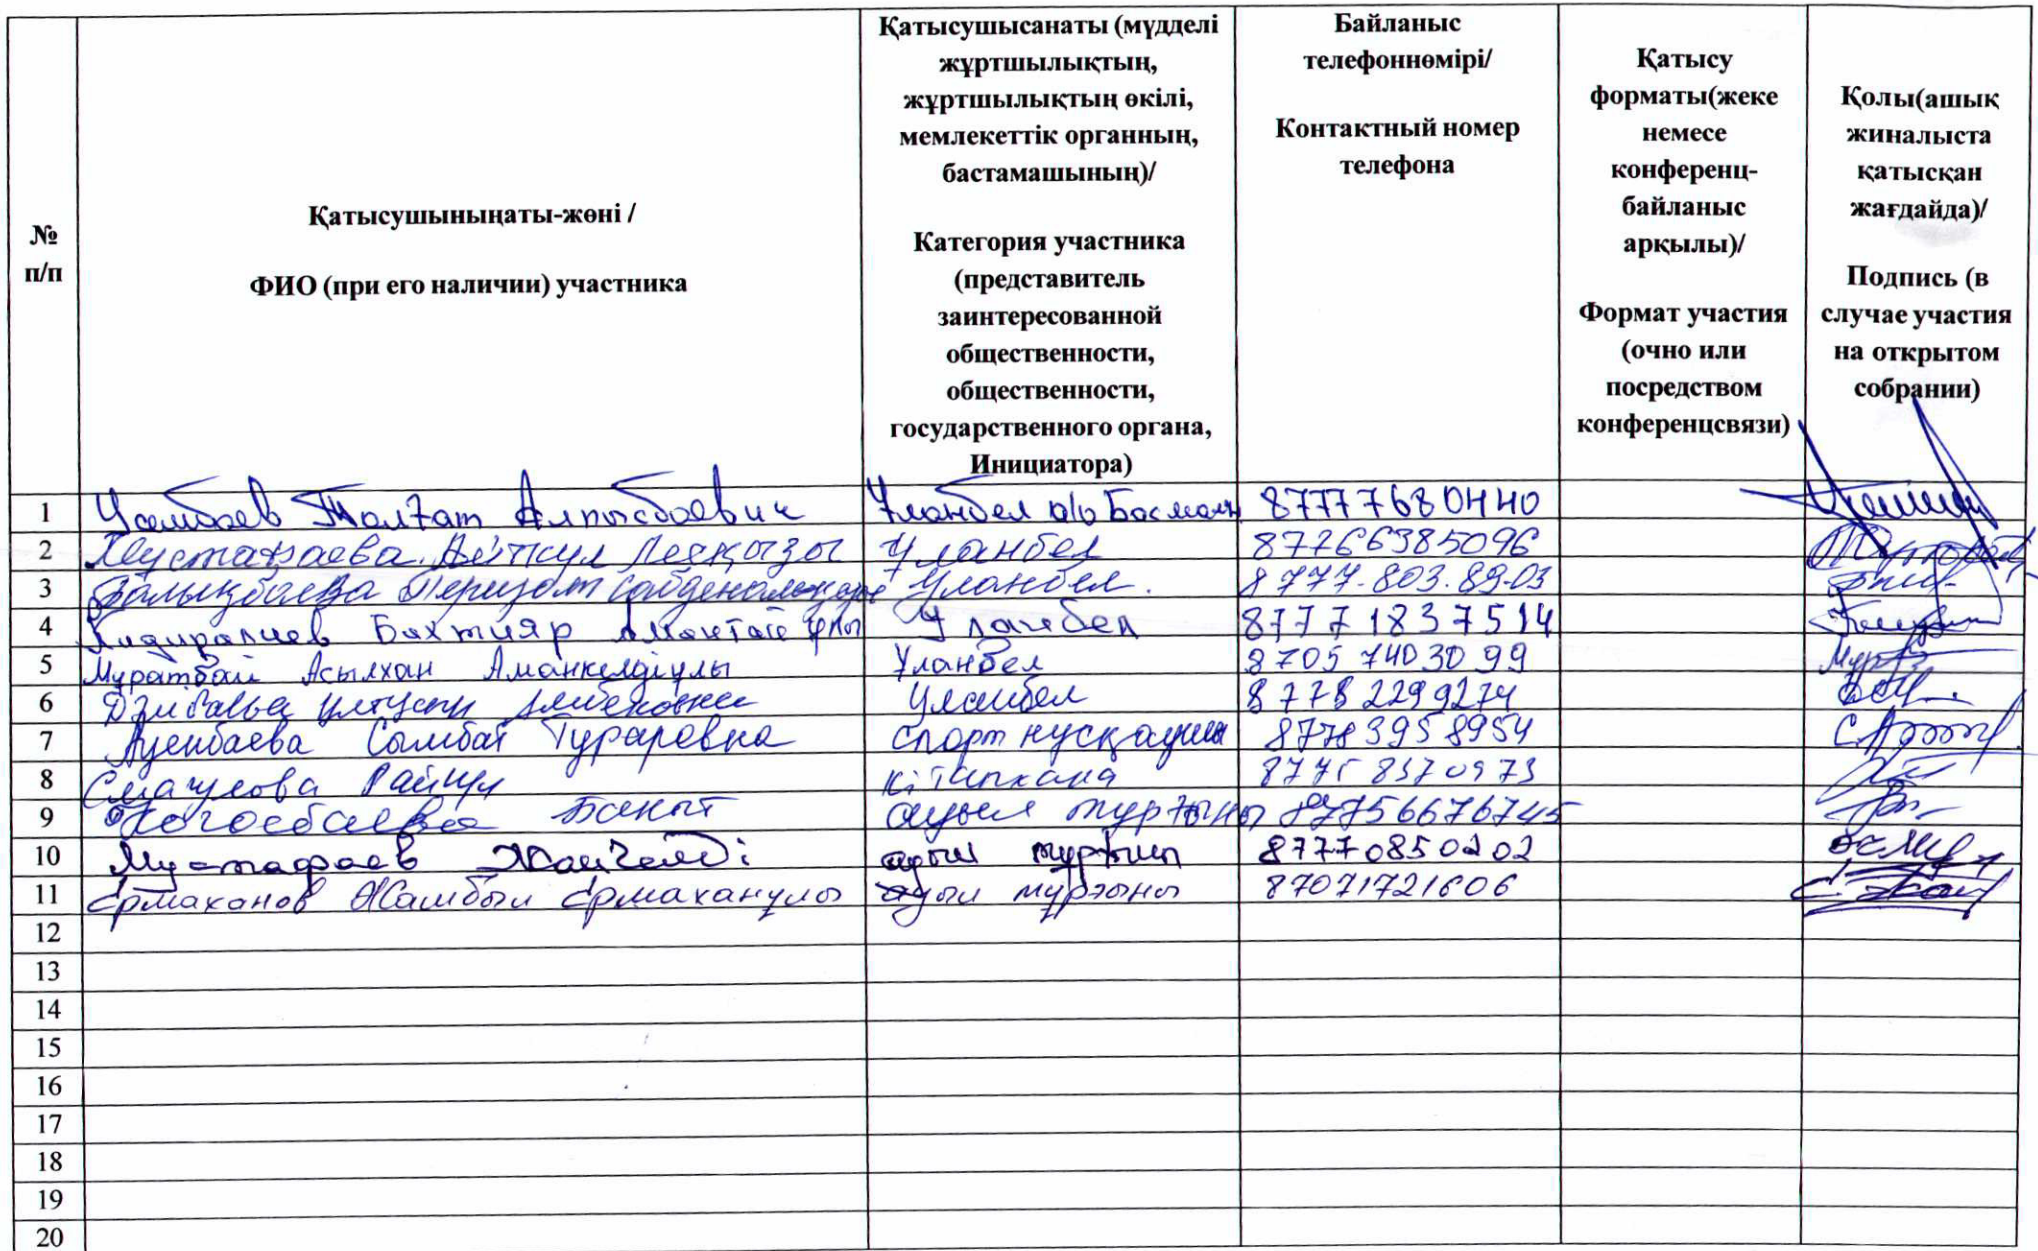 №
п/п
Қатысушыныңаты-жөні /
ФИО (при его наличии) участника
Қатысушысанаты (мүдделі
жұртшылықтың,
жұртшылықтың өкілі,
мемлекеттік органның,
бастамашының)/
Категория участника
(представитель
заинтересованной
общественности,
общественности,
государственного органа,
Инициатора)
Байланыс
телефоннөмірі/
Контактный номер
телефона
Қатысу
форматы(жеке
немесе
конференц-
байланыс
арқылы)/
Формат участия
(очно или
посредством
конференцсвязи)
Қолы(ашық
жиналыста
қатысқан
жағдайда)/
Подпись (в
случае участия
на открытом
собрании)
1 Усембаев Талғат Алпысбаевич Ұланбел а/о 87777680440
2 Мустафаева Уланбел 87766385096
3 Уланбел. 8777.803.89.03
4 Бахтияр Уланбел 87771837514
5 Мұратбай Асылхан Аманкелдіұлы Ұланбел 87057403099
6 Уланбел 87782299274
7 Сымбат Тураровна спорт нұсқаушы 87783958954
8 Смағулова Райгул кітапхана
9 Бакыт ауыл тұрғыны 87756676745
10 Мустафаев ауыл тұрғын 87770850202
11 Ермаханов Жамбыл Ермаханұлы ауыл тұрғыны 87071721606
12
13
14
15
16
17
18
19
20